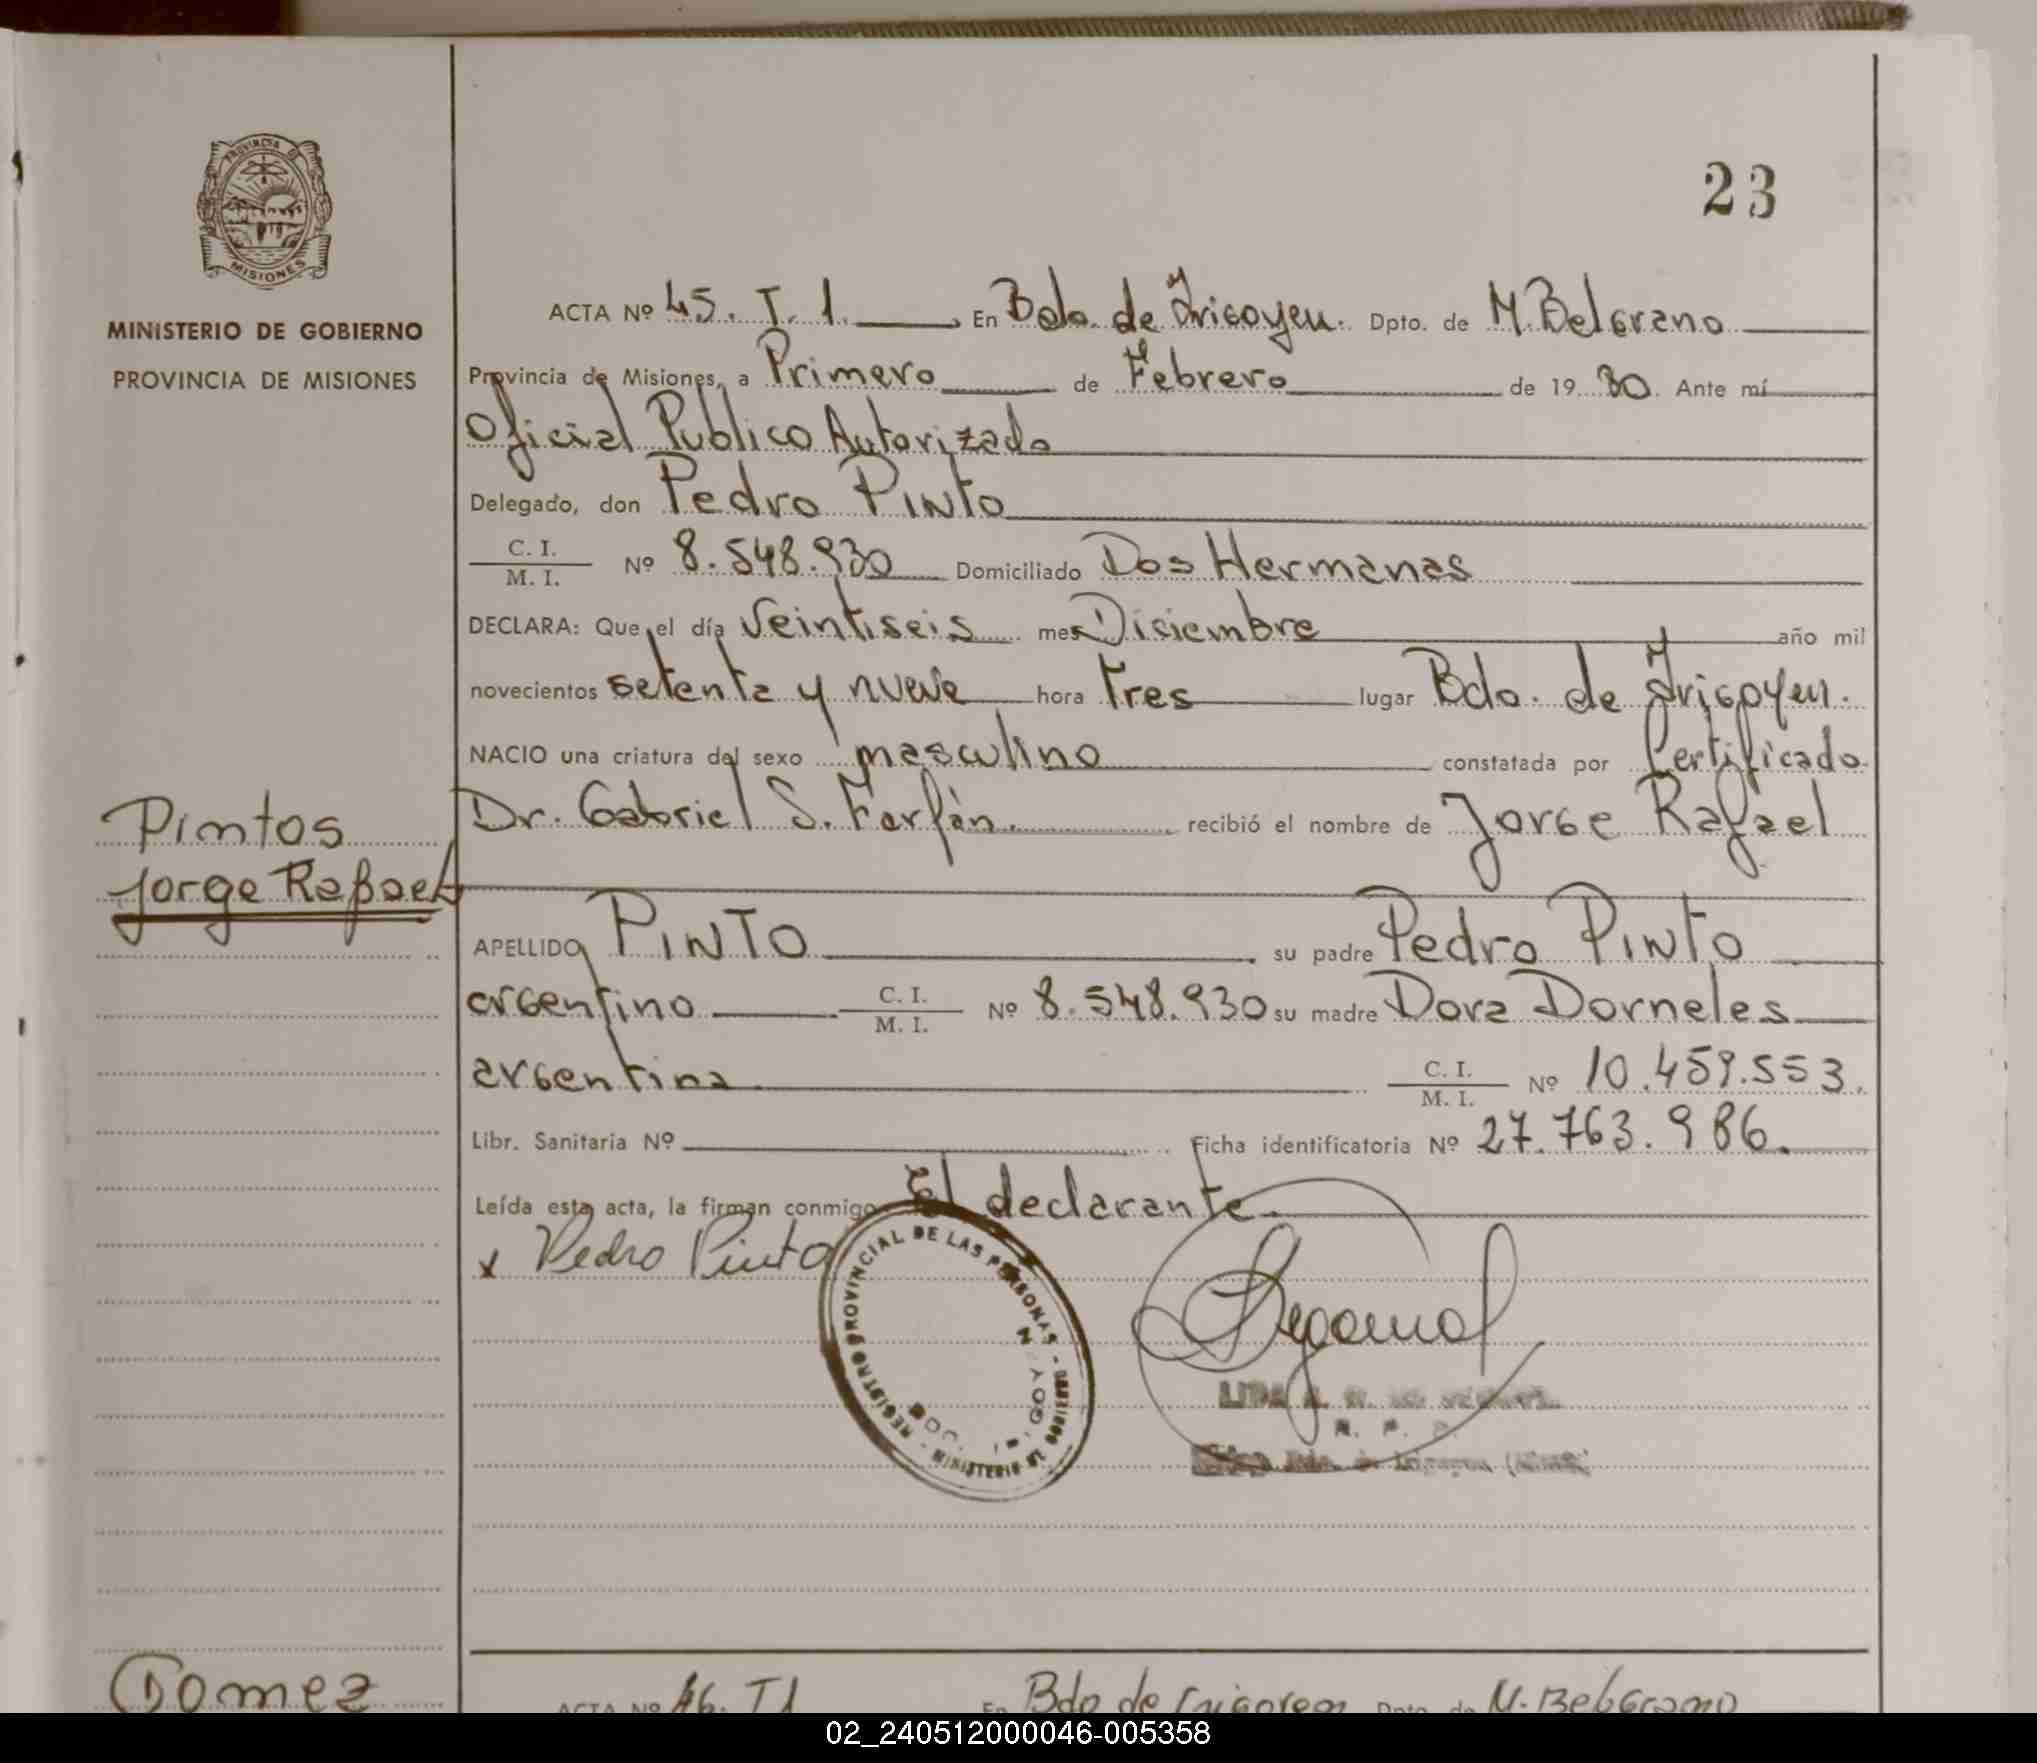 23
PROVINCIA DE
MISIONES
MINISTERIO DE GOBIERNO
PROVINCIA DE MISIONES
ACTA Nº 45. T. 1. En Bdo. de Irigoyen. Dpto. de M. Belgrano
Provincia de Misiones, a Primero de Febrero de 19 80. Ante mí
Oficial Publico Autorizado
Delegado, don Pedro Pinto
C. I. / M. I. Nº 8.548.930 Domiciliado Dos Hermanas
DECLARA: Que el día Veintiseis mes Diciembre año mil
novecientos setenta y nueve hora Tres lugar Bdo. de Irigoyen.
NACIO una criatura del sexo masculino constatada por Certificado
Dr. Gabriel S. Farfán. recibió el nombre de Jorge Rafael
Pintos
Jorge Rafael
APELLIDO PINTO su padre Pedro Pinto
argentino C. I. / M. I. Nº 8.548.930 su madre Dora Dorneles
argentina C. I. / M. I. Nº 10.459.553.
Libr. Sanitaria Nº Ficha identificatoria Nº 27.763.986.
Leída esta acta, la firman conmigo El declarante
x Pedro Pinto
REGISTRO PROVINCIAL DE LAS PERSONAS - MINISTERIO DE GOBIERNO
Gomez
ACTA Nº 46. T1 En Bdo de Irigoyen Dpto. de M. Belgrano
02_240512000046-005358